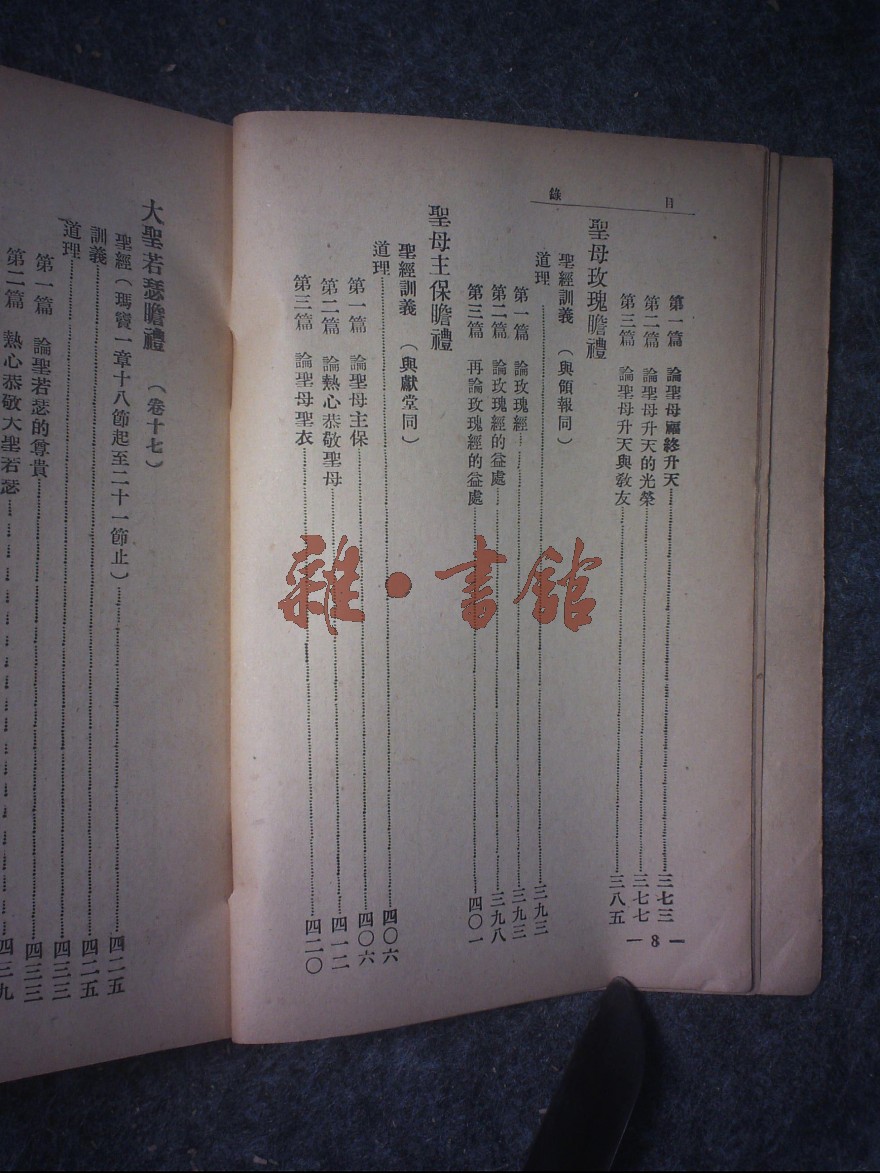 目錄
第一篇 論聖母臨終升天 三七三
第二篇 論聖母升天的光榮 三七七
第三篇 論聖母升天與敎友 三八五
聖母玫瑰瞻禮
聖經訓義 (與領報同)
道理 三九三
第一篇 論玫瑰經 三九三
第二篇 論玫瑰經的益處 三九八
第三篇 再論玫瑰經的益處 四〇一
聖母主保瞻禮
聖經訓義 (與獻堂同)
道理 四〇六
第一篇 論聖母主保 四〇六
第二篇 論熱心恭敬聖母 四一二
第三篇 論聖母聖衣 四二〇
— 8 —
大聖若瑟瞻禮 (卷十七)
聖經(瑪竇一章十八節起至二十一節止) 四二五
訓義 四二五
道理 四三三
第一篇 論聖若瑟的尊貴 四三三
第二篇 熱心恭敬大聖若瑟 四三九
雜·書館